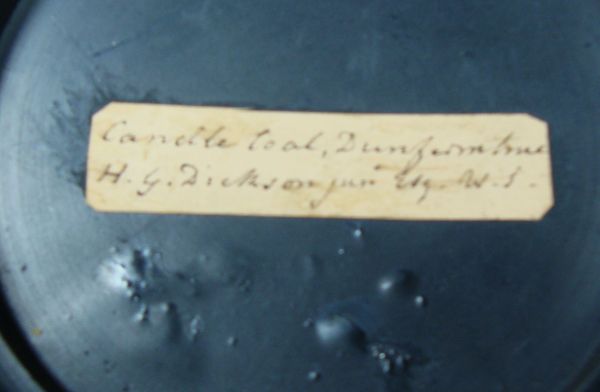 Candle Coal, Dunfermline
H. G. Dickson junr Esq. W. S.